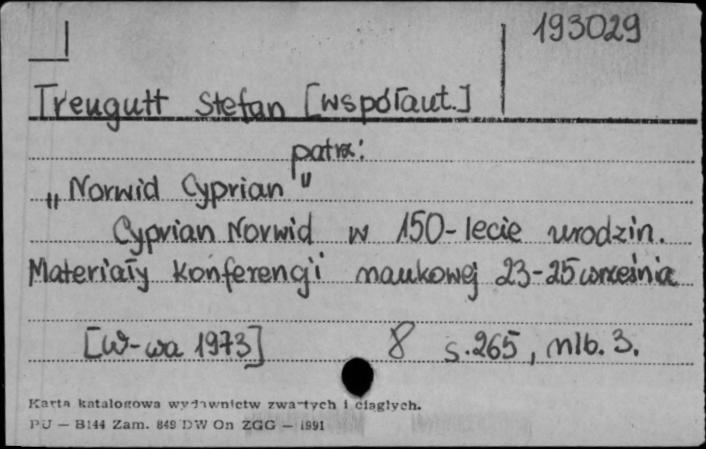 193029
Treugutt Stefan [współaut.]
patrz:
„Norwid Cyprian"
Cyprian Norwid w 150-lecie urodzin.
Materiały Konferencji naukowej 23-25 września
[W-wa 1973] 8 s.265, nlb. 3.
Karta katalogowa wydawnictw zwartych i ciągłych.
PU — B144 Zam. 849 DW On ZGG — 1991